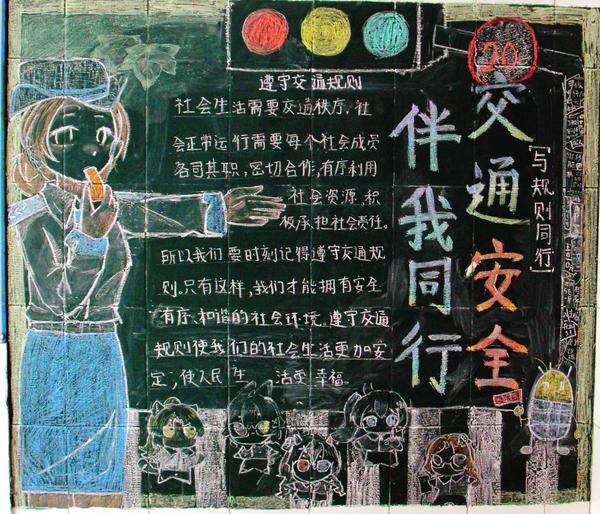 20
交通安全
伴我同行
[写规则同行]
遵守交通规则
社会生活需要交通秩序,社
会正常运行需要每个社会成员
各司其职,密切合作,有序利用
社会资源,积
极承担社会责任。
所以我们要时刻记得遵守交通规
则。只有这样,我们才能拥有安全
有序、和谐的社会环境。遵守交通
规则使我们的社会生活更加安
定,使人民生活更幸福。